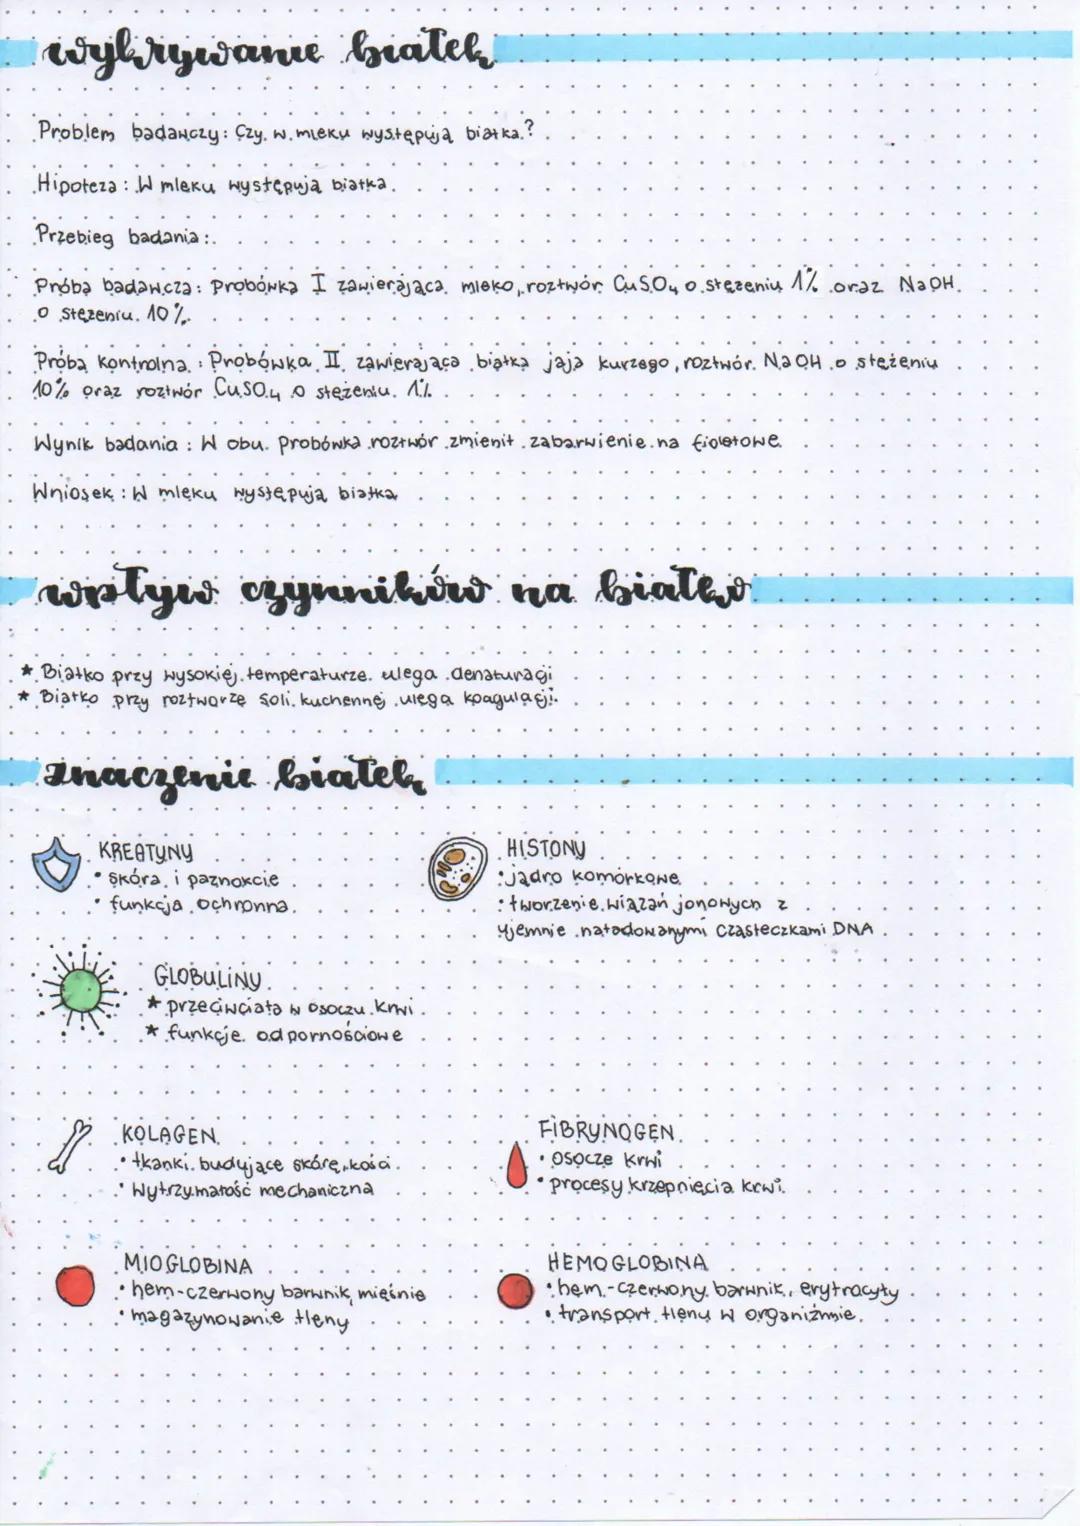 wykrywanie białek
Problem badawczy: Czy w mleku występują białka?
Hipoteza: W mleku występują białka.
Przebieg badania:
Próba badawcza: Probówka I zawierająca mleko, roztwór CuSO4 o stężeniu 1% oraz NaOH
o stężeniu 10%.
Próba kontrolna: Probówka II zawierająca białka jaja kurzego, roztwór NaOH o stężeniu
10% oraz roztwór CuSO4 o stężeniu 1%.
Wynik badania: W obu probówka roztwór zmienił zabarwienie na fioletowe.
Wniosek: W mleku występują białka
wpływ czynników na białko
* Białko przy wysokiej temperaturze ulega denaturacji
* Białko przy roztworze soli kuchennej ulega koagulacji.
znaczenie białek
KREATYNY
• skóra i paznokcie
• funkcja ochronna
HISTONY
• jądro komórkowe
• tworzenie wiązań jonowych z
ujemnie naładowanymi cząsteczkami DNA
GLOBULINY
* przeciwciała w osoczu krwi
* funkcje odpornościowe
KOLAGEN
• tkanki budujące skórę, kości
• wytrzymałość mechaniczna
FIBRYNOGEN
• osocze krwi
• procesy krzepnięcia krwi
MIOGLOBINA
• hem-czerwony barwnik, mięśnie
• magazynowanie tlenu
HEMOGLOBINA
• hem-czerwony barwnik, erytrocyty
• transport tlenu w organiźmie